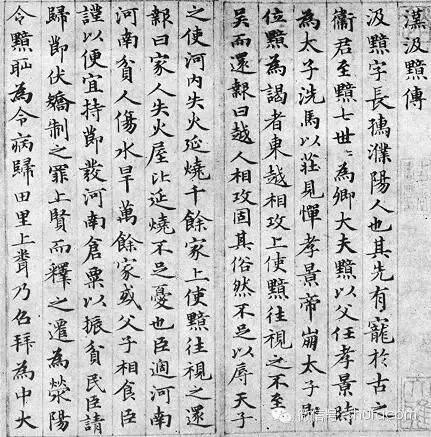 漢汲黯傳
汲黯字長孺濮陽人也其先有寵於古之
衞君至黯七世〻為卿大夫黯以父任孝景時
為太子洗馬以莊見憚孝景帝崩太子
位黯為謁者東越相攻上使黯往視之不至
吳而還報曰越人相攻固其俗然不足以辱天子
之使河內失火延燒千餘家上使黯往視之還
報曰家人失火屋比延燒不足憂也臣適河南
河南貧人傷水旱萬餘家或父子相食臣
謹以便宜持節發河南倉粟以振貧民臣請
歸節伏矯制之罪上賢而釋之遷為滎陽
令黯恥為令病歸田里上聞乃召拜為中大